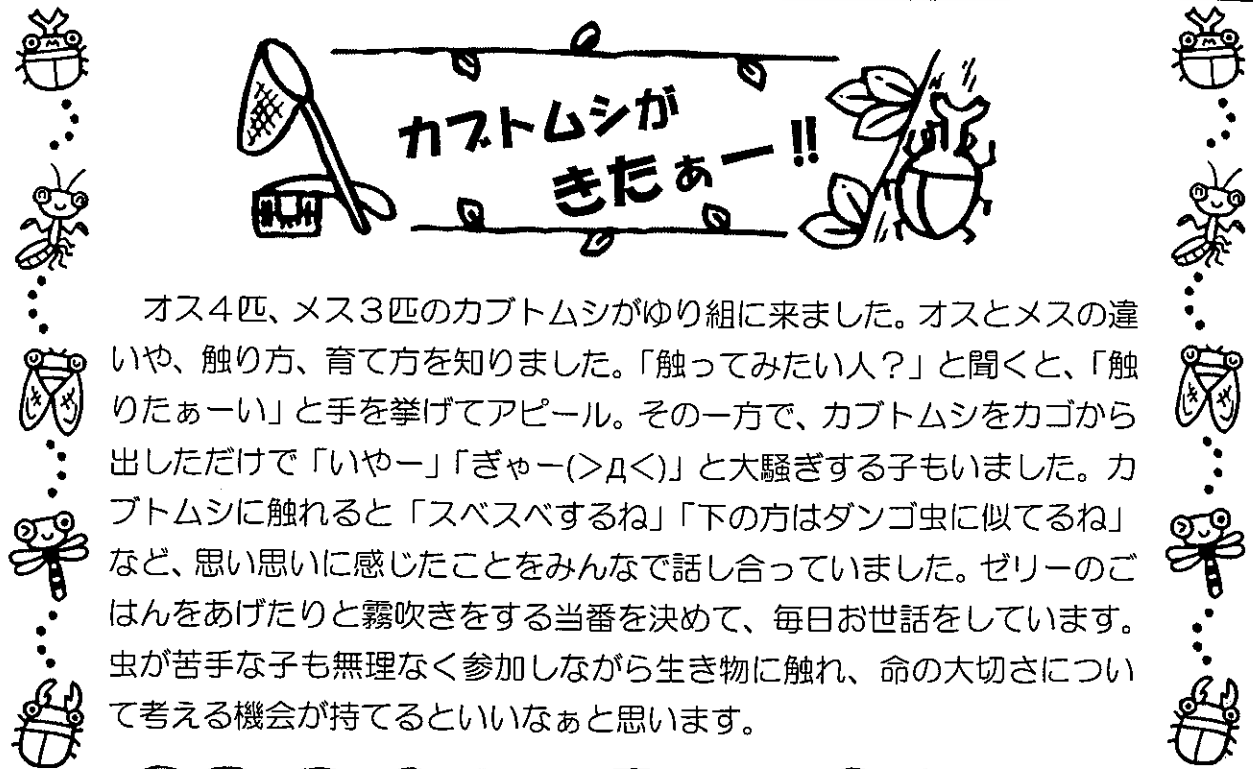 カブトムシが
きたぁー!!
オス4匹、メス3匹のカブトムシがゆり組に来ました。オスとメスの違
いや、触り方、育て方を知りました。「触ってみたい人？」と聞くと、「触
りたぁーい」と手を挙げてアピール。その一方で、カブトムシをカゴから
出しただけで「いやー」「ぎゃー(>д<)」と大騒ぎする子もいました。カ
ブトムシに触れると「スベスベするね」「下の方はダンゴ虫に似てるね」
など、思い思いに感じたことをみんなで話し合っていました。ゼリーのご
はんをあげたりと霧吹きをする当番を決めて、毎日お世話をしています。
虫が苦手な子も無理なく参加しながら生き物に触れ、命の大切さについ
て考える機会が持てるといいなぁと思います。